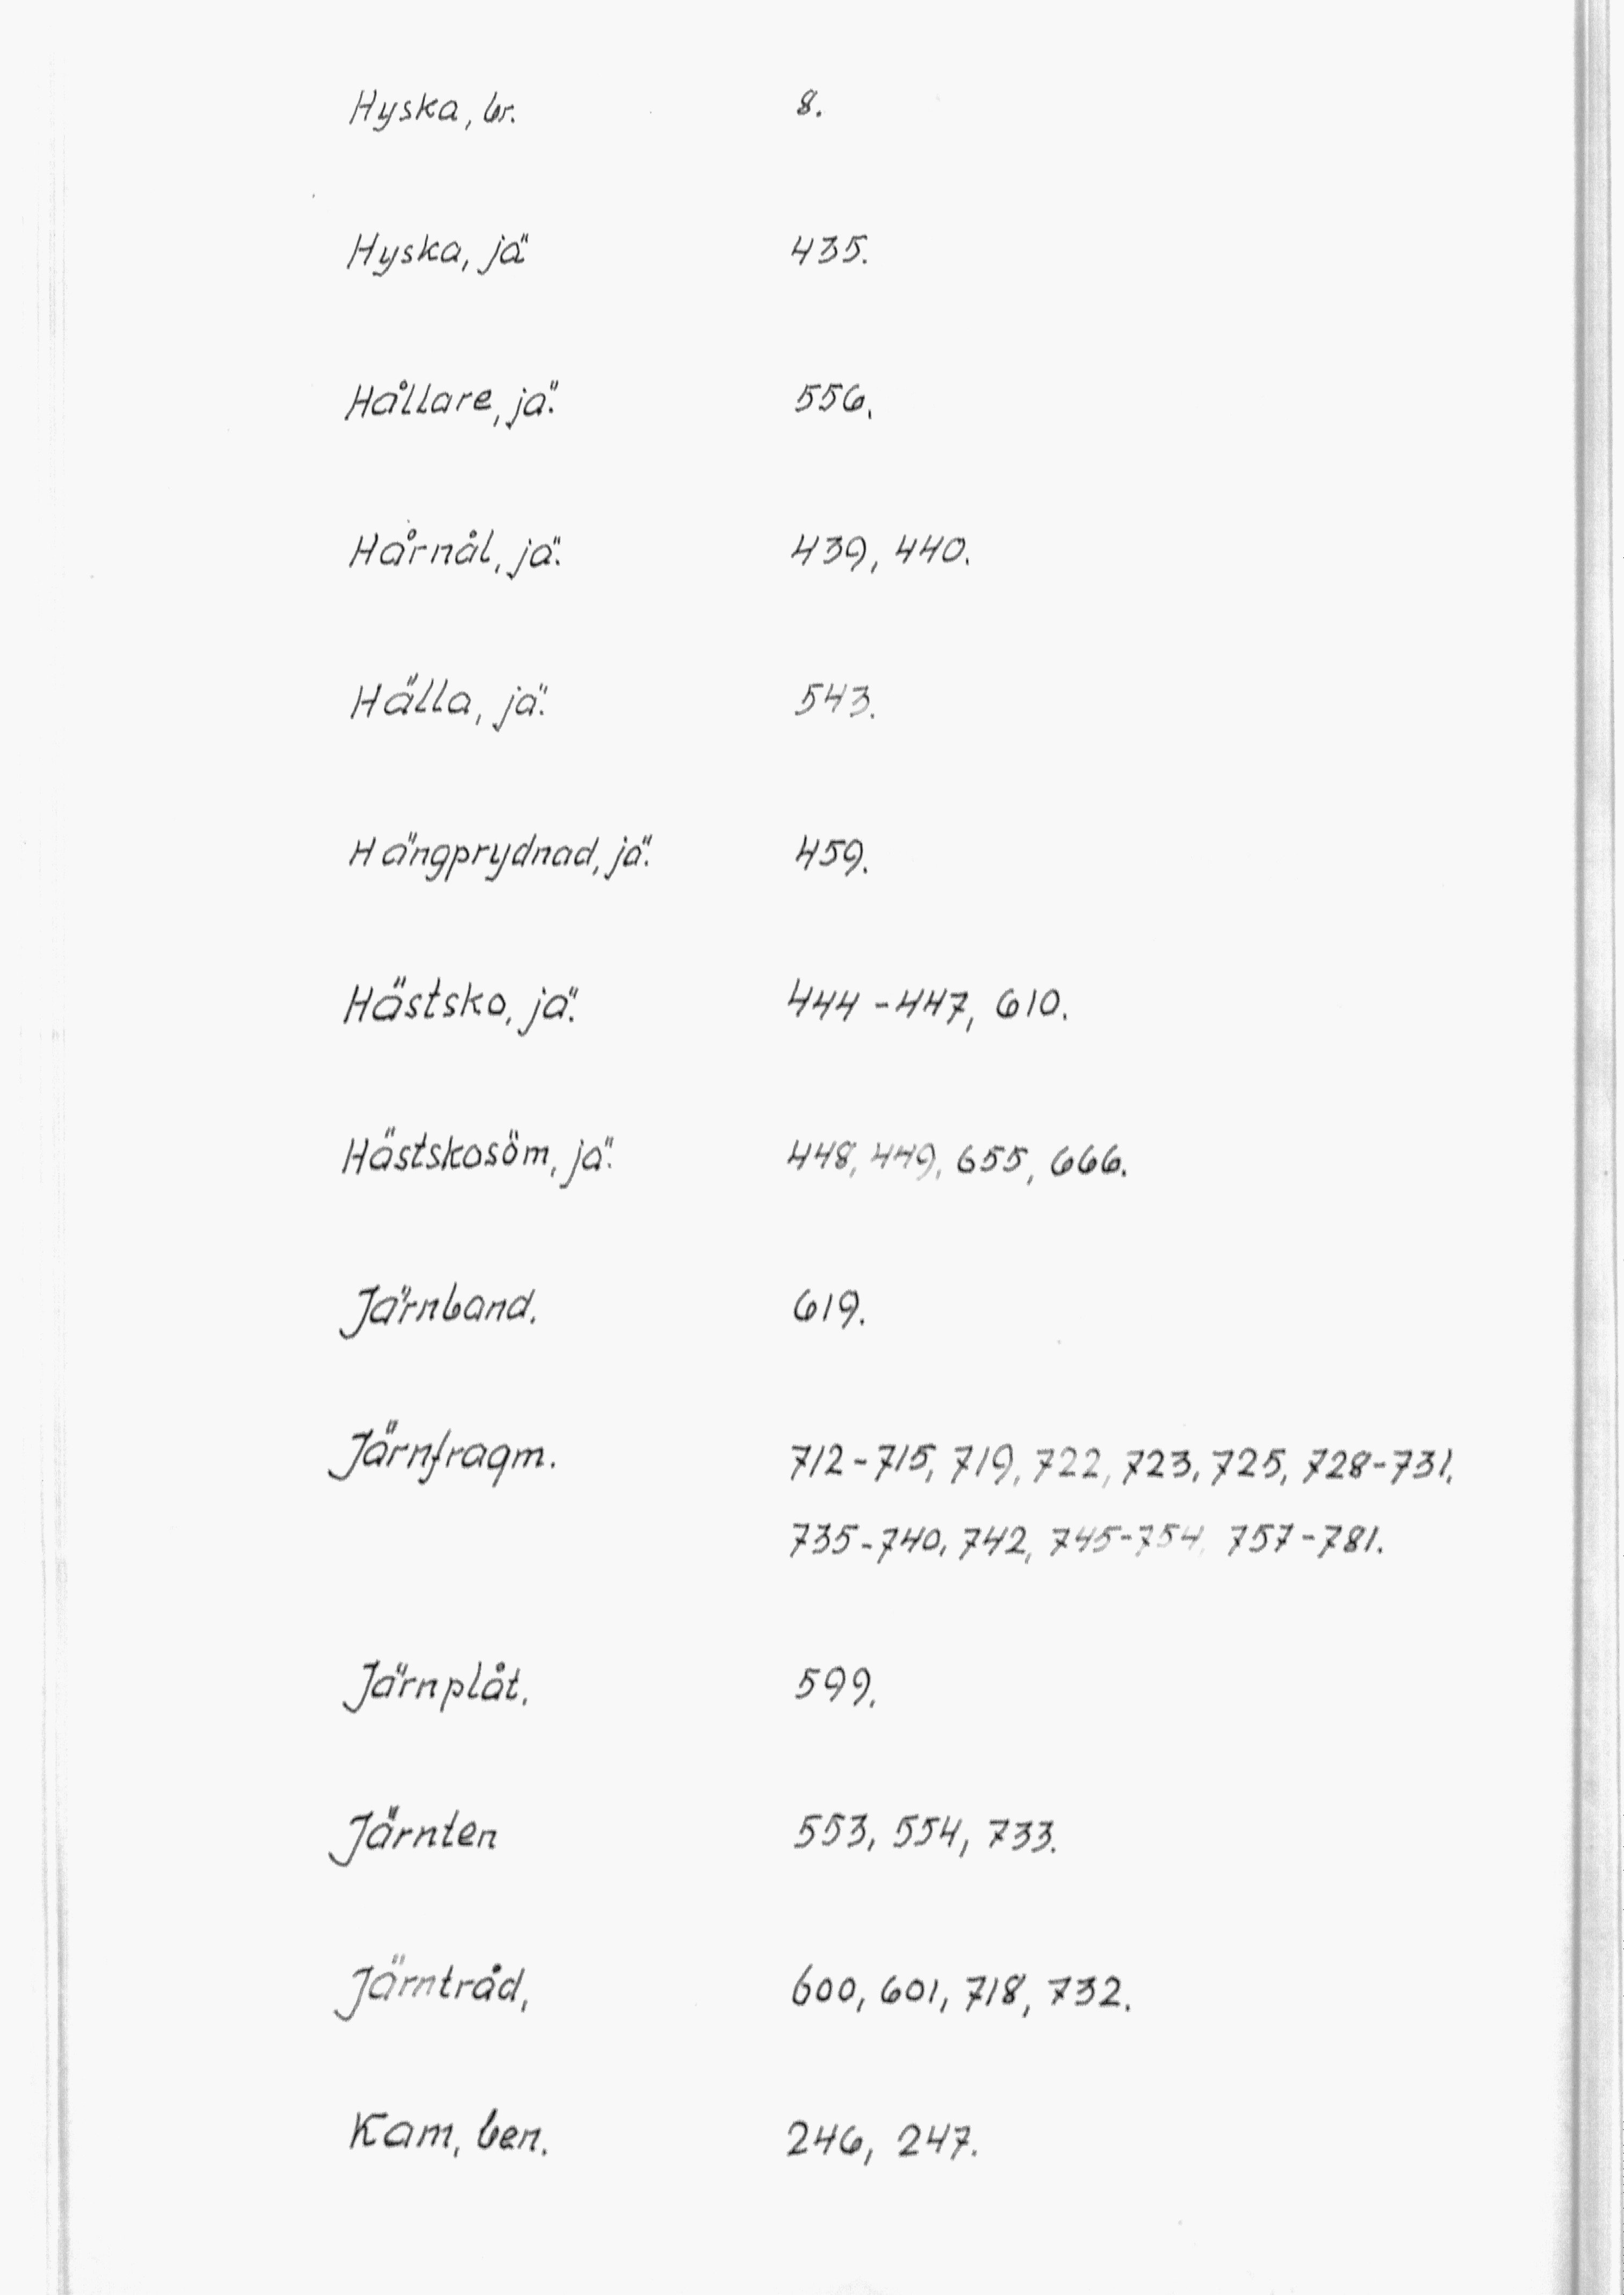 Hyska, br. 8.
Hyska, jä 435.
Hållare, jä. 556.
Hårnål, jä. 439, 440.
Hälla, jä. 543.
Hängprydnad, jä. 459.
Hästsko, jä. 444-447, 610.
Hästskosöm, jä. 448, 449, 655, 666.
Järnband. 619.
Järnfragm. 712-715, 719, 722, 723, 725, 728-731,
735-740, 742, 745-754, 757-781.
Järnplåt. 599.
Järnten 553, 554, 733.
Järntråd, 600, 601, 718, 732.
Kam, ben. 246, 247.